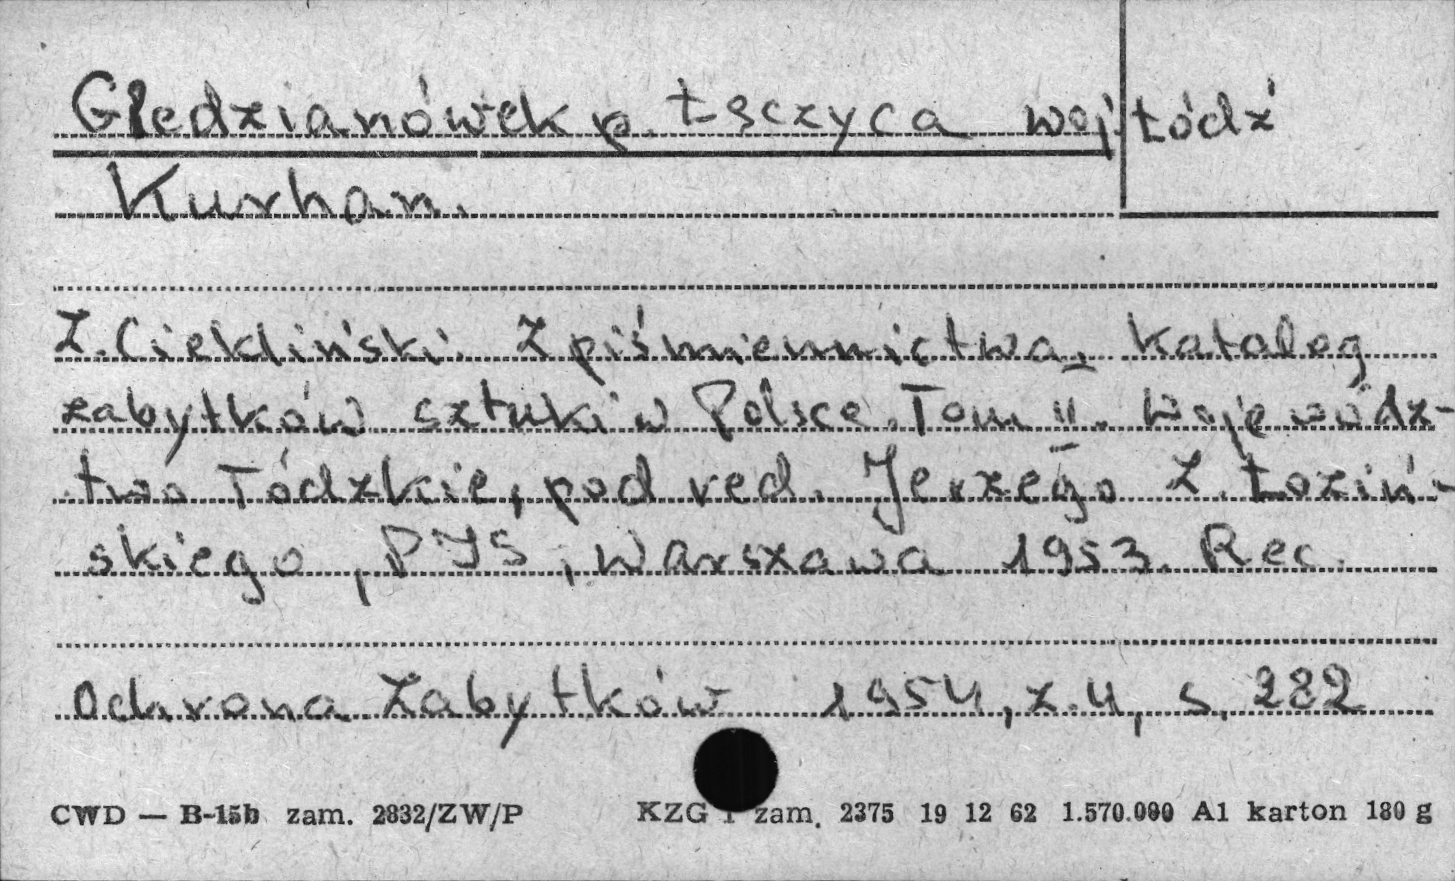 Gledzianówek p. Łęczyca woj. Łódź
Kurhan.
Z. Ciekliński. Z piśmiennictwa. Katalog
zabytków sztuki w Polsce. Tom II. Wojewódz-
two Łódzkie, pod red. Jerzego Z. Łoziń-
skiego, PIS, Warszawa 1953. Rec.
Ochrona Zabytków 1954, z. 4, s. 282
CWD — B-15b zam. 2832/ZW/P KZG 1 zam. 2375 19 12 62 1.570.000 A1 karton 180 g